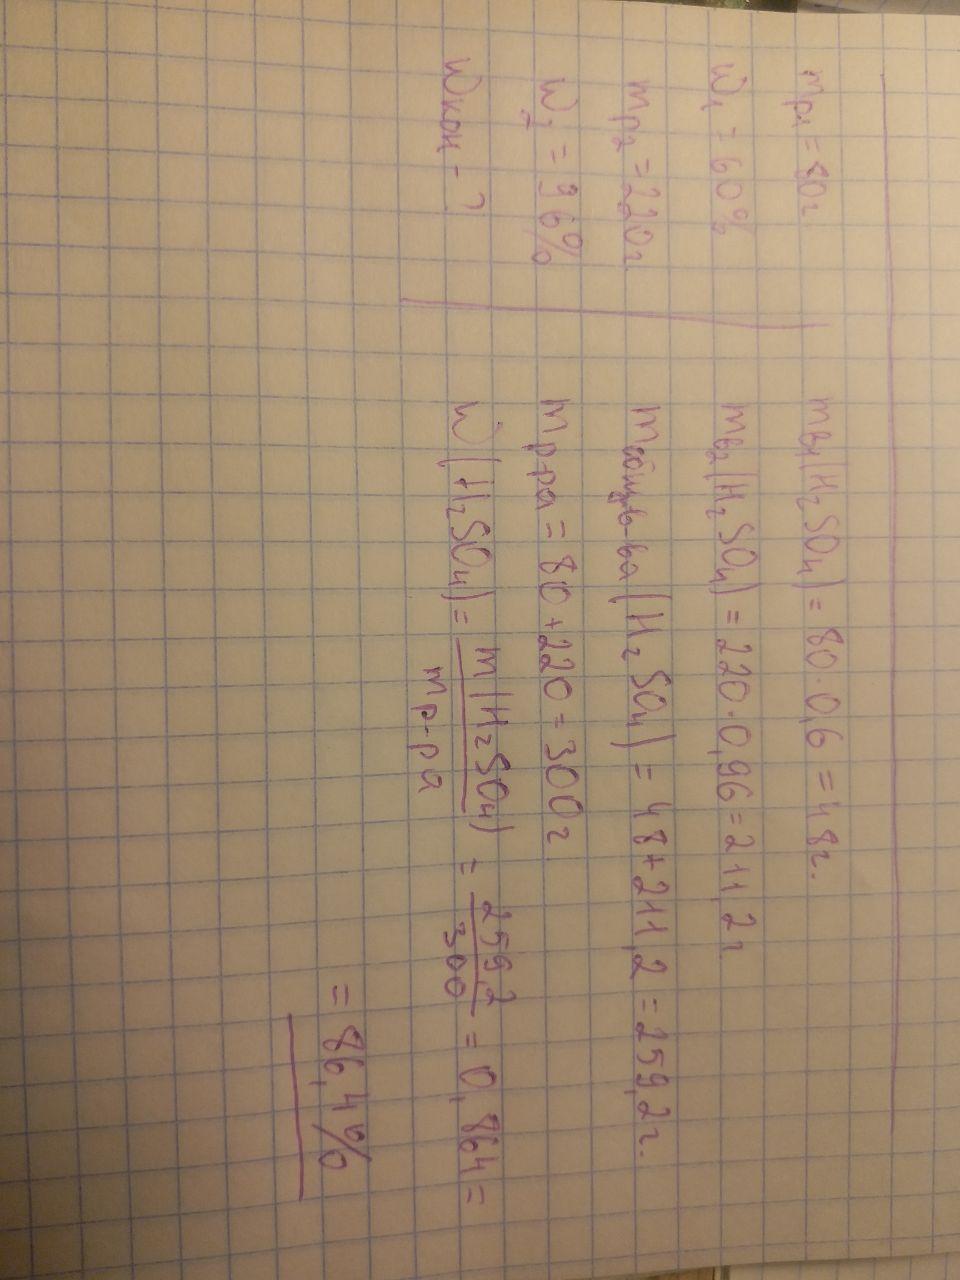 mр1 = 80г
W1 = 60%
mр2 = 220г
W2 = 96%
Wкон - ?
mв1(H2SO4) = 80 · 0,6 = 48г.
mв2(H2SO4) = 220 · 0,96 = 211,2г
mобщ в-ва(H2SO4) = 48 + 211,2 = 259,2г.
mр-ра = 80 + 220 = 300г
W(H2SO4) = m(H2SO4) / mр-ра = 259,2 / 300 = 0,864 =
= 86,4%